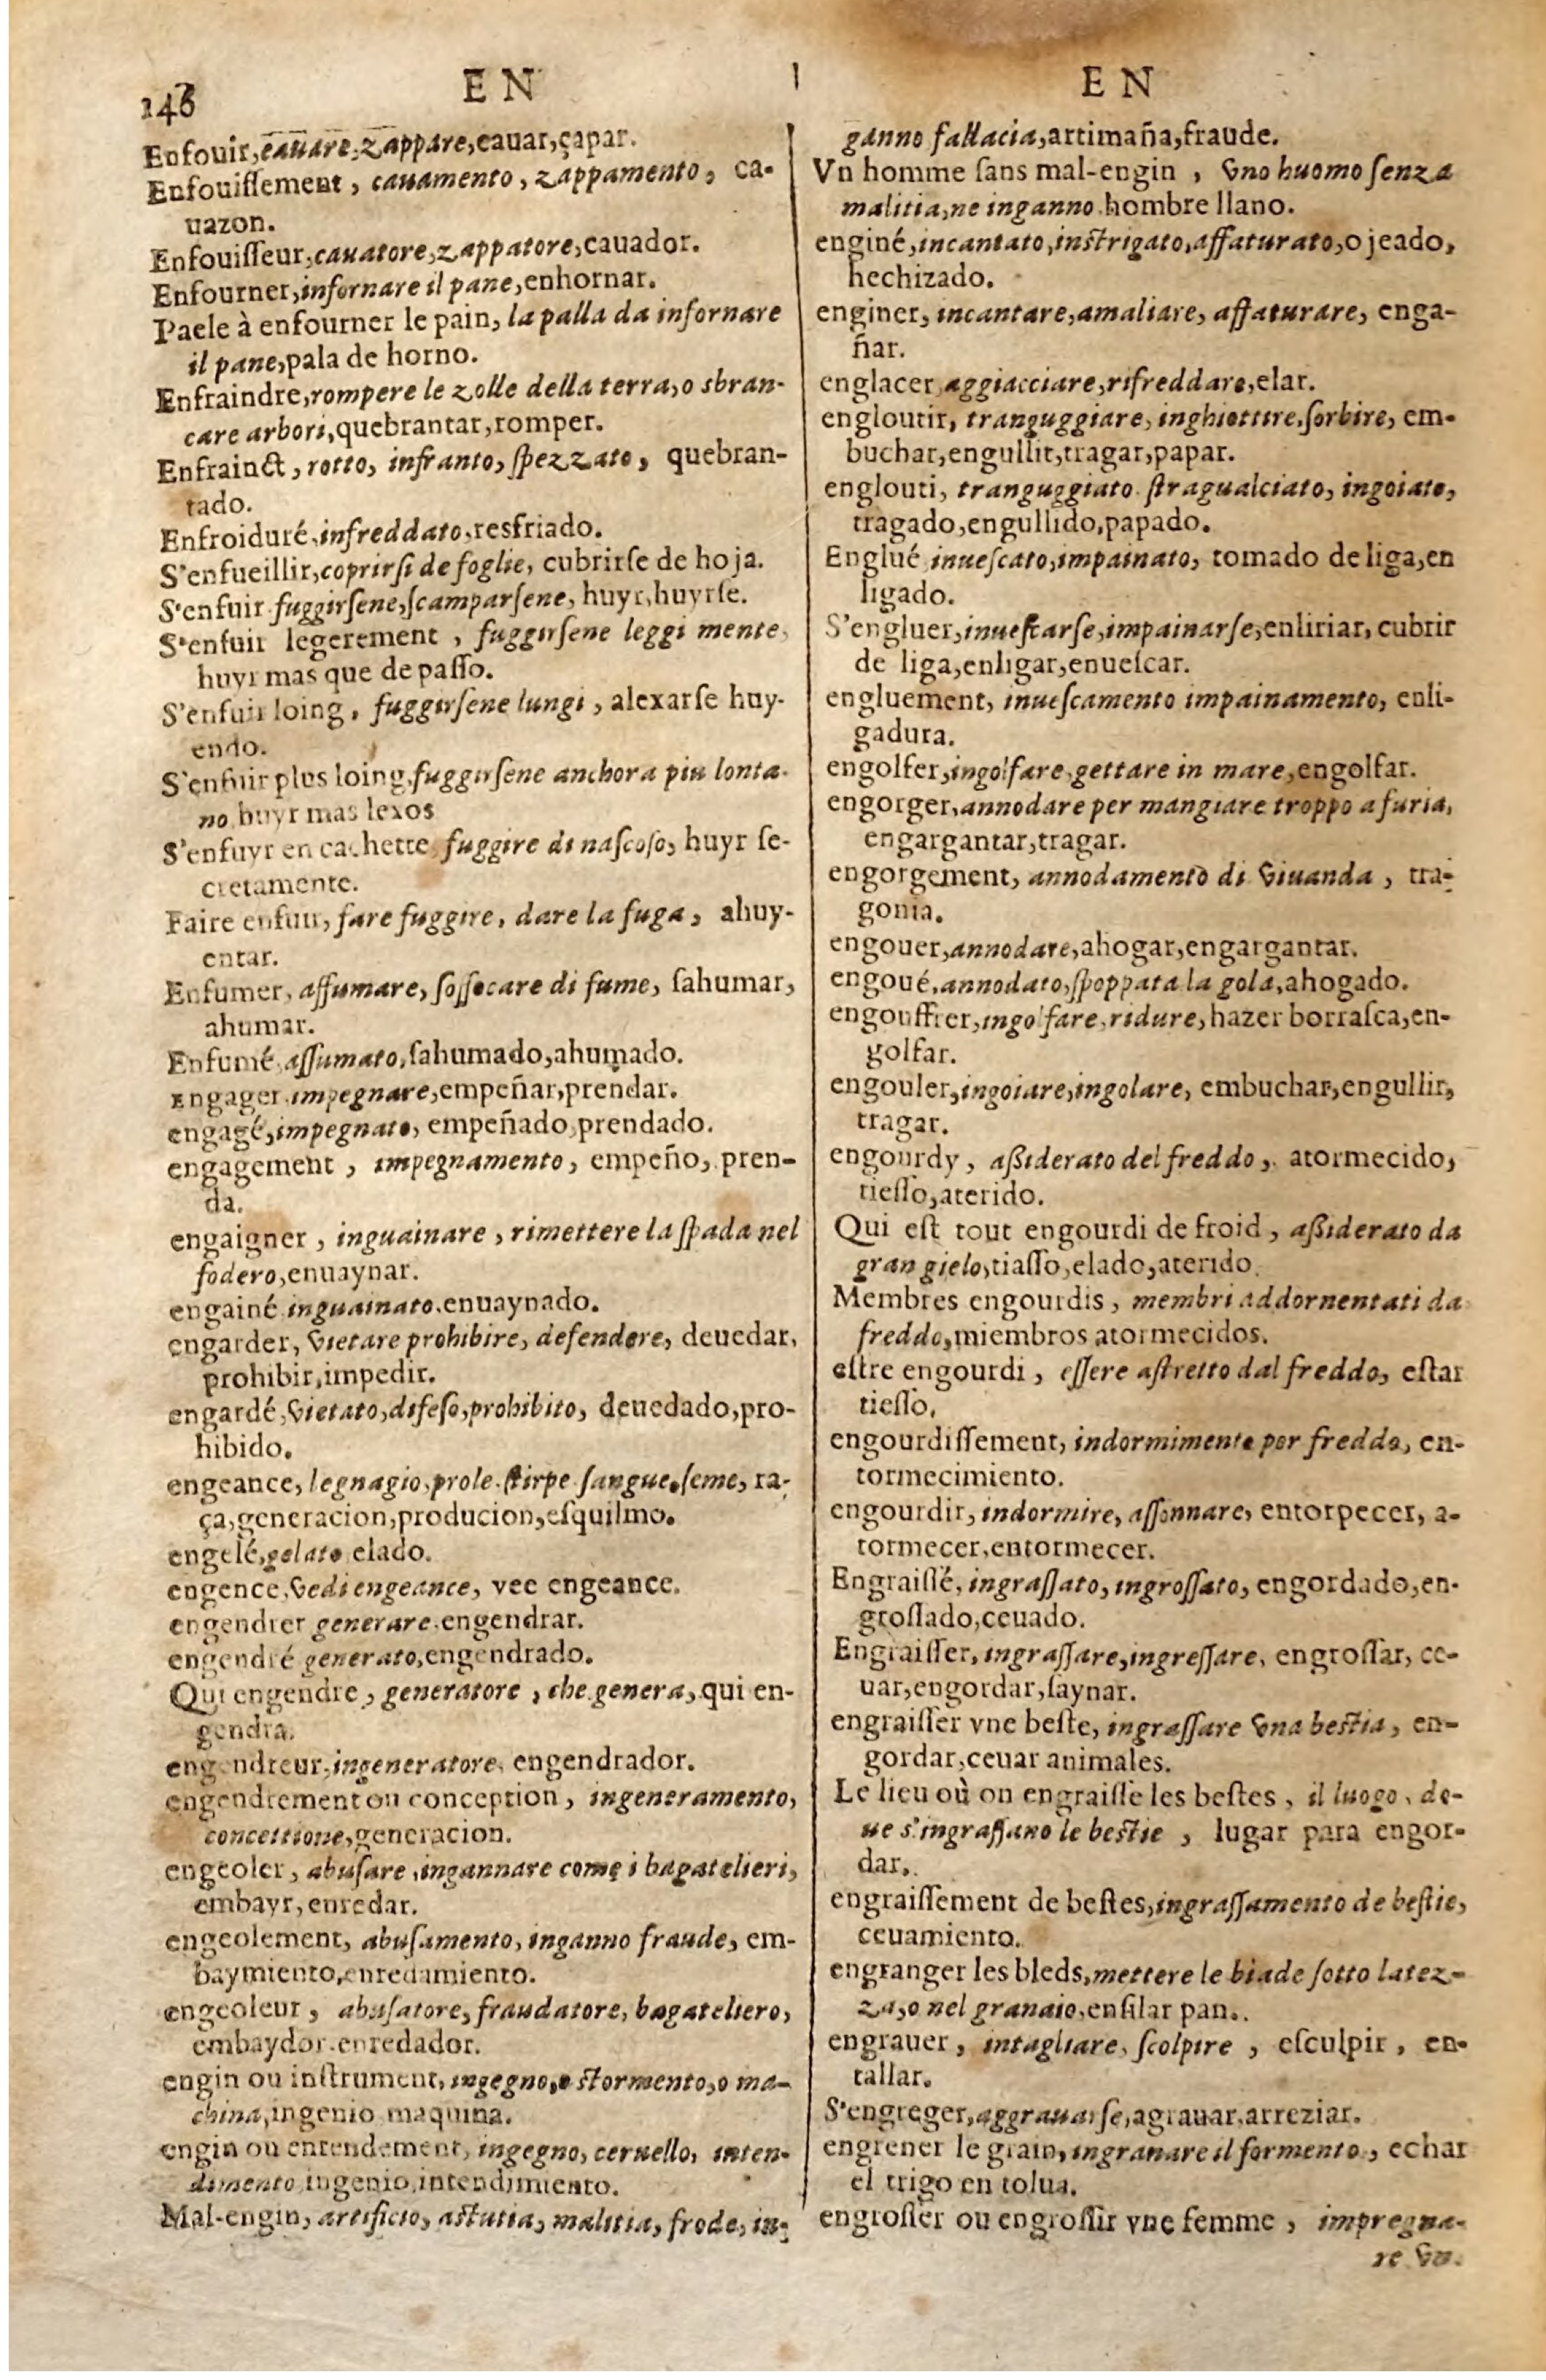 146
EN
EN
Enfouir, cauare, zappare, cauar, çapar.
Enfouiſſement, cauamento, zappamento, ca-
uazon.
Enfouiſſeur, cauatore, zappatore, cauador.
Enfourner, infornare il pane, enhornar.
Paele à enfourner le pain, la palla da infornare
il pane, pala de horno.
Enfraindre, rompere le zolle della terra, o sbran-
care arbori, quebrantar, romper.
Enfrainct, rotto, infranto, ſpezzato, quebran-
tado.
Enfroiduré, infreddato, resfriado.
S'enfueillir, coprirſi de foglie, cubrirſe de hoja.
S'enfuir fuggirſene, ſcamparſene, huyr, huyrſe.
S'enfuir legerement, fuggirſene leggi mente,
huyr mas que de paſſo.
S'enfuir loing, fuggirſene lungi, alexarſe huy-
endo.
S'enfuir plus loing, fuggirſene anchora piu lonta-
no, huyr mas lexos
S'enfuyr en cachette fuggire di naſcoſo, huyr ſe-
cretamente.
Faire enfuir, fare fuggire, dare la fuga, ahuy-
entar.
Enfumer, affumare, ſoffocare di fume, ſahumar,
ahumar.
Enfumé, aſſumato, ſahumado, ahumado.
Engager impegnare, empeñar, prendar.
engagé, impegnato, empeñado, prendado.
engagement, impegnamento, empeño, pren-
da.
engaigner, inguainare, rimettere la ſpada nel
fodero, enuaynar.
engainé inguainato, enuaynado.
engarder, vietare prohibire, defendere, deuedar,
prohibir, impedir.
engardé, vietato, difeſo, prohibito, deuedado, pro-
hibido.
engeance, legnagio, prole, ſtirpe ſangue, ſeme, ra-
ça, generacion, producion, eſquilmo.
engelé, gelato elado.
engence, vedi engeance, vee engeance.
engendrer generare, engendrar.
engendré generato, engendrado.
Qui engendre, generatore, che genera, qui en-
gendra.
engendreur, ingeneratore, engendrador.
engendrement ou conception, ingeneramento,
concettione, generacion.
engeoler, abuſare, ingannare come i bagatelieri,
embayr, enredar.
engeolement, abuſamento, inganno fraude, em-
baymiento, enredamiento.
engeoleur, abuſatore, fraudatore, bagateliero,
embaydor, enredador.
engin ou inſtrument, ingegno, o ſtormento, o ma-
china, ingenio maquina.
engin ou entendement, ingegno, ceruello, inten-
dimento ingenio, intendimiento.
Mal-engin, artificio, aſtutia, malitia, frode, in-
ganno fallacia, artimaña, fraude.
Vn homme ſans mal-engin, vno huomo ſenza
malitia, ne inganno hombre llano.
enginé, incantato, inſtrigato, affaturato, ojeado,
hechizado.
enginer, incantare, amaliare, affaturare, enga-
ñar.
englacer aggiacciare, rifreddare, elar.
engloutir, tranguggiare, inghiottire, ſorbire, em-
buchar, engullir, tragar, papar.
englouti, tranguggiato ſtragualciato, ingoiato,
tragado, engullido, papado.
Englué inueſcato, impainato, tomado de liga, en
ligado.
S'engluer, inueſcarſe, impainarſe, enliriar, cubrir
de liga, enligar, enueſcar.
engluement, inueſcamento impainamento, enli-
gadura.
engolfer, ingolfare, gettare in mare, engolfar.
engorger, annodare per mangiare troppo a furia,
engargantar, tragar.
engorgement, annodamento di viuanda, tra-
gonia.
engouer, annodare, ahogar, engargantar.
engoué, annodato, ſpoppata la gola, ahogado.
engouffrer, ingolfare, ridure, hazer borraſca, en-
golfar.
engouler, ingoiare, ingolare, embuchar, engullir,
tragar.
engourdy, aßiderato del freddo, atormecido,
tieſſo, aterido.
Qui eſt tout engourdi de froid, aßiderato da
gran gielo, tiaſſo, elado, aterido.
Membres engourdis, membri addornentati da
freddo, miembros atormecidos.
eſtre engourdi, eſſere aſtretto dal freddo, eſtar
tieſſo.
engourdiſſement, indormimento per freddo, en-
tormecimiento.
engourdir, indormire, aſſonnare, entorpecer, a-
tormecer, entormecer.
Engraiſſé, ingraſſato, ingroſſato, engordado, en-
groſſado, ceuado.
Engraiſſer, ingraſſare, ingreſſare, engroſſar, ce-
uar, engordar, ſaynar.
engraiſſer vne beſte, ingraſſare vna beſtia, en-
gordar, ceuar animales.
Le lieu où on engraiſſe les beſtes, il luogo, do-
ue s'ingraſſano le beſtie, lugar para engor-
dar.
engraiſſement de beſtes, ingraſſamento de beſtie,
ceuamiento.
engranger les bleds, mettere le biade ſotto la tez-
za, o nel granaio, enſilar pan.
engrauer, intagliare, ſcolpire, eſculpir, en-
tallar.
S'engreger, aggrauarſe, agrauar, arreziar.
engrener le grain, ingranare il formento, echar
el trigo en tolua.
engroſſer ou engroſſir vne femme, impregna-
re vn.